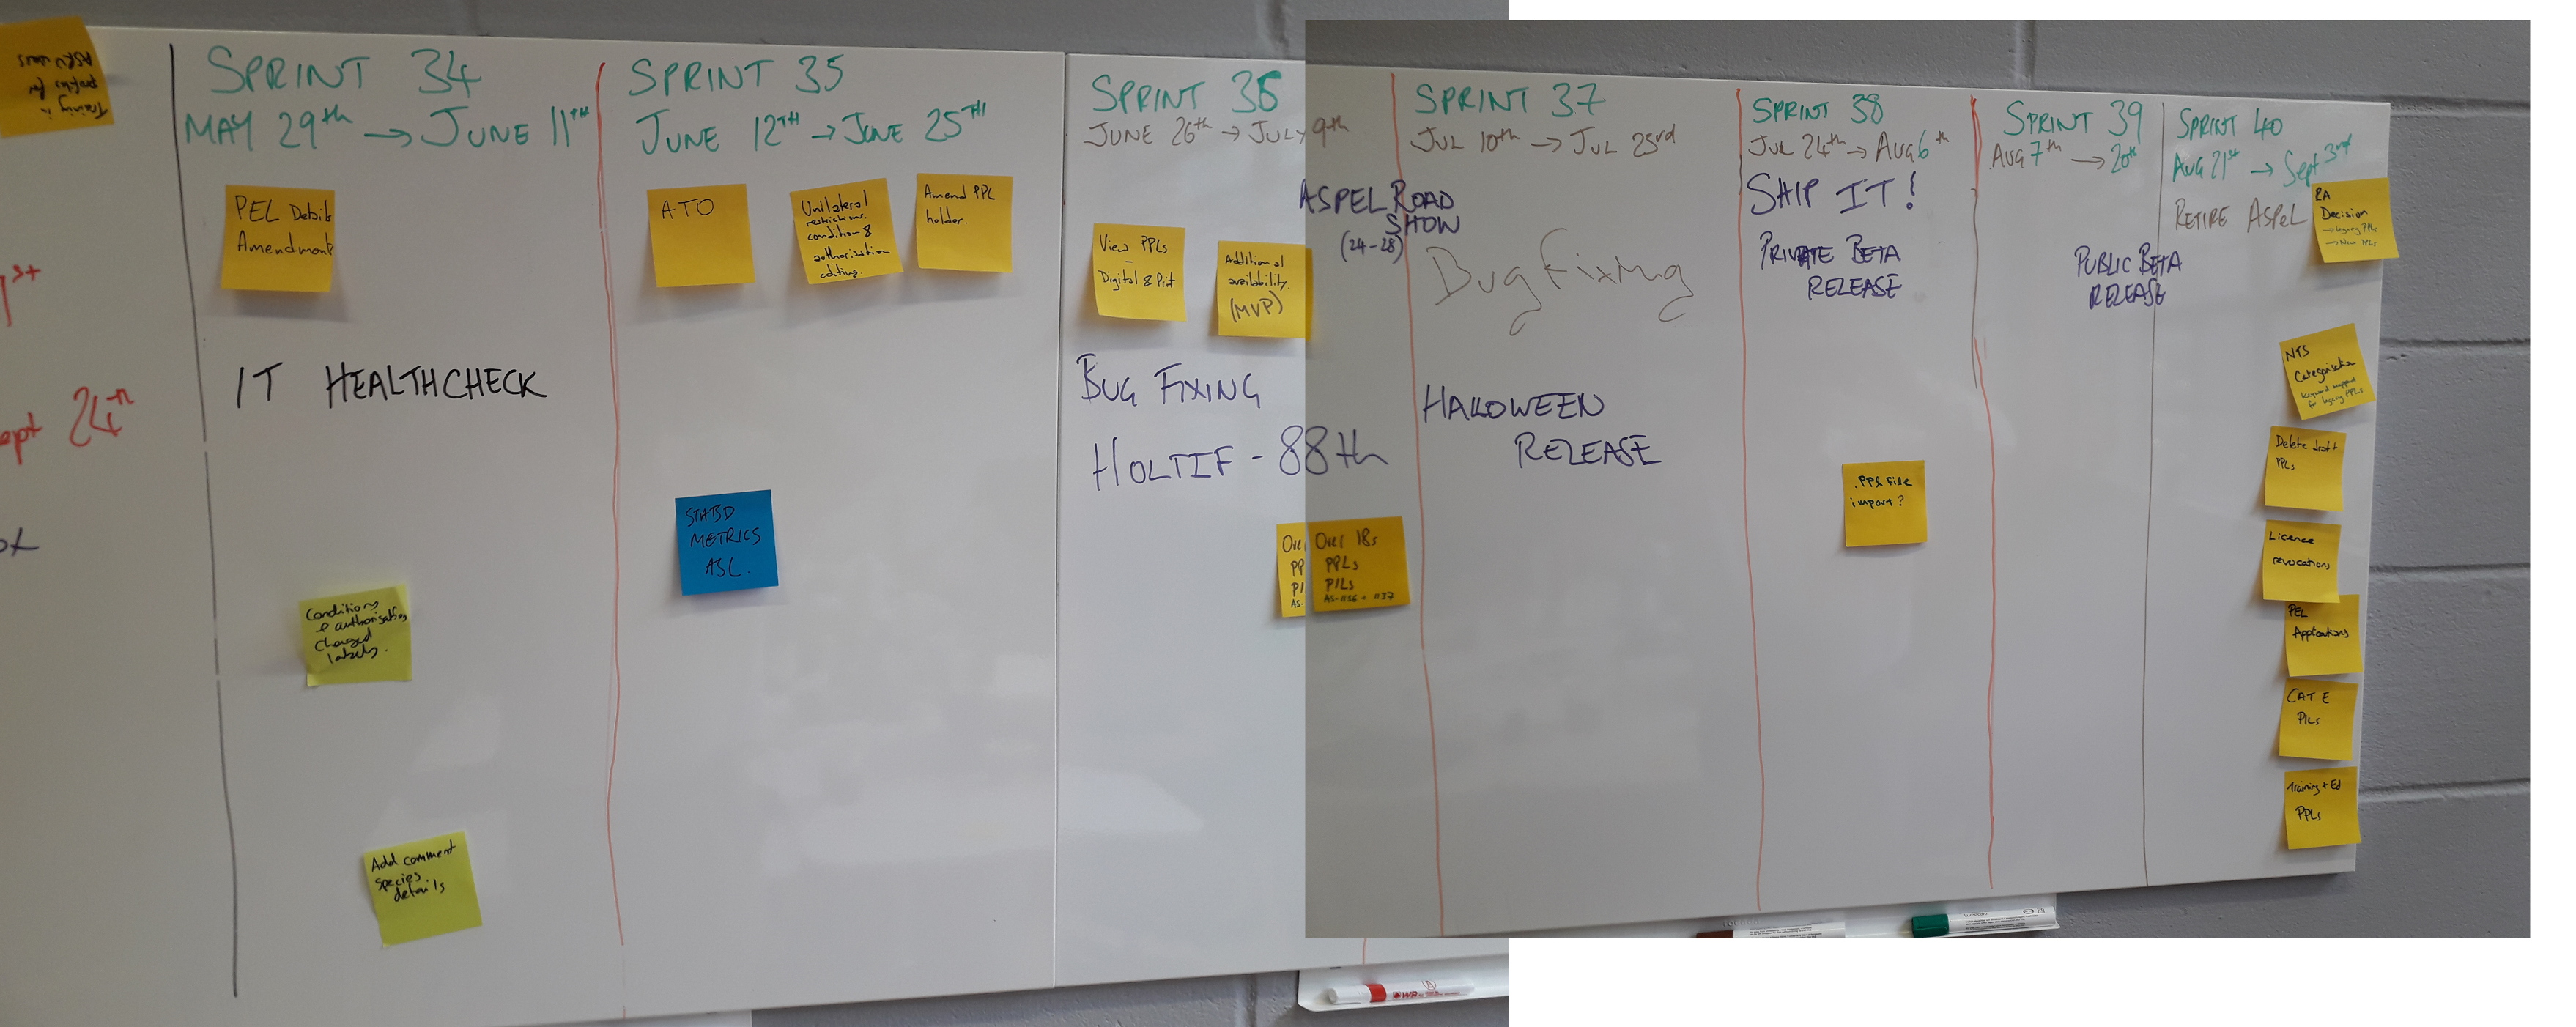 Training in
profiles for
SPRINT 34
MAY 29th → JUNE 11TH
PEL Details
Amendment
IT HEALTHCHECK
Conditions
& authorisations
changed
labels.
Add comment
species
details
SPRINT 35
JUNE 12TH → JUNE 25TH
ATO
Unilateral
restrictions.
condition &
authorisation
editing.
Amend PPL
holder.
STATSD
METRICS
ASL.
SPRINT 36
JUNE 26th → JULY 9th
ASPEL ROAD
SHOW
(24-28)
View PPLs
-
Digital & Pint
Additional
availability.
(MVP)
BUG FIXING
HOLTIF - 88th
Over 18s
PPLs
PILs
AS-1136 + 1137
SPRINT 37
JUL 10th → JUL 23rd
Bug Fixing
HALLOWEEN
RELEASE
SPRINT 38
JUL 24th → AUG 6th
SHIP IT!
PRIVATE BETA
RELEASE
.PPL file
import?
SPRINT 39
AUG 7th → 20th
PUBLIC BETA
RELEASE
SPRINT 40
AUG 21st → Sept 3rd
RETIRE ASPeL
RA
Decision
→ legacy PPLs
→ New PPLs
NTS
Categorisation
for legacy PPLs
Delete draft
PPLs
Licence
revocations
PEL
Applications
CAT E
PILs
Training + Ed
PPLs
24th